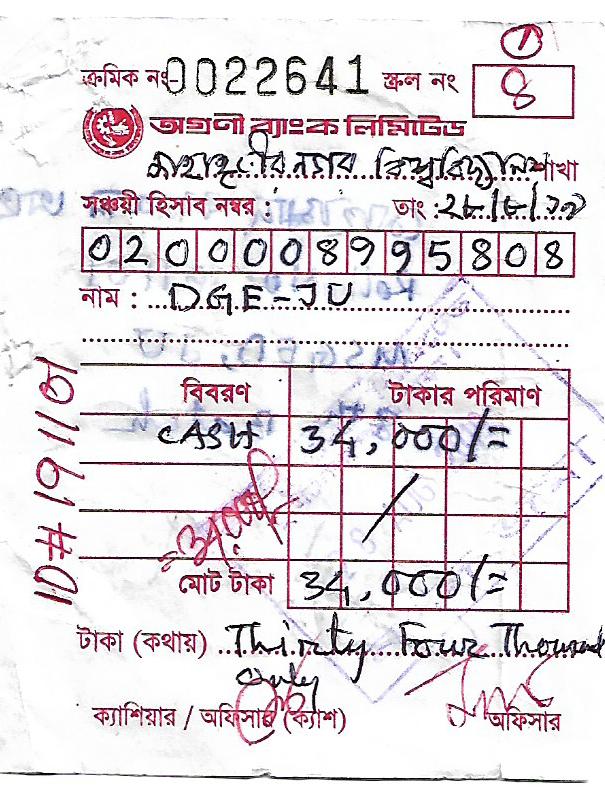 ক্রমিক নং- 0022641 স্ক্রল নং 8
1
অগ্রণী ব্যাংক লিমিটেড
জাহাঙ্গীরনগর বিশ্ববিদ্যালয় শাখা
সঞ্চয়ী হিসাব নম্বর : তাং :
0200008995808
নাম : DGE-JU
বিবরণ টাকার পরিমাণ
CASH 34,000/=
34000/-
মোট টাকা 34,000/=
টাকা (কথায়) Thirty Four Thousand
only
ক্যাশিয়ার / অফিসার (ক্যাশ) অফিসার
ID# 191101